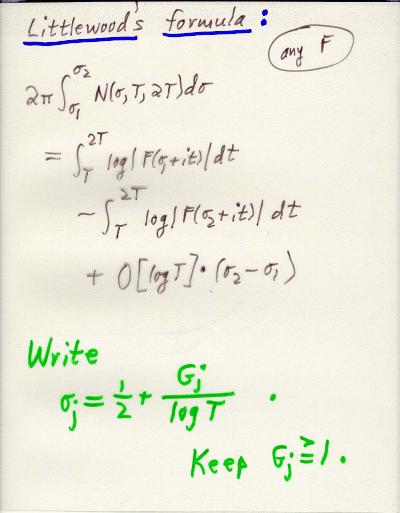 Littlewood's formula:
any F
2π ∫_{σ₁}^{σ₂} N(σ, T, 2T)dσ
= ∫_T^{2T} log|F(σ₁+it)|dt
- ∫_T^{2T} log|F(σ₂+it)| dt
+ O[log T]·(σ₂-σ₁)
Write
σⱼ = 1/2 + Gⱼ/log T .
Keep Gⱼ ≥ 1.